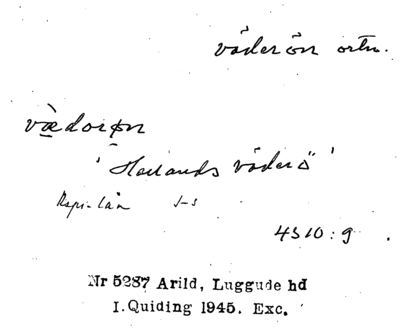 väderön ortn.
vædorøn
'Hallands väderö'
4310:9.
Nr 5287 Arild, Luggude hd
I. Quiding 1945. Exc.